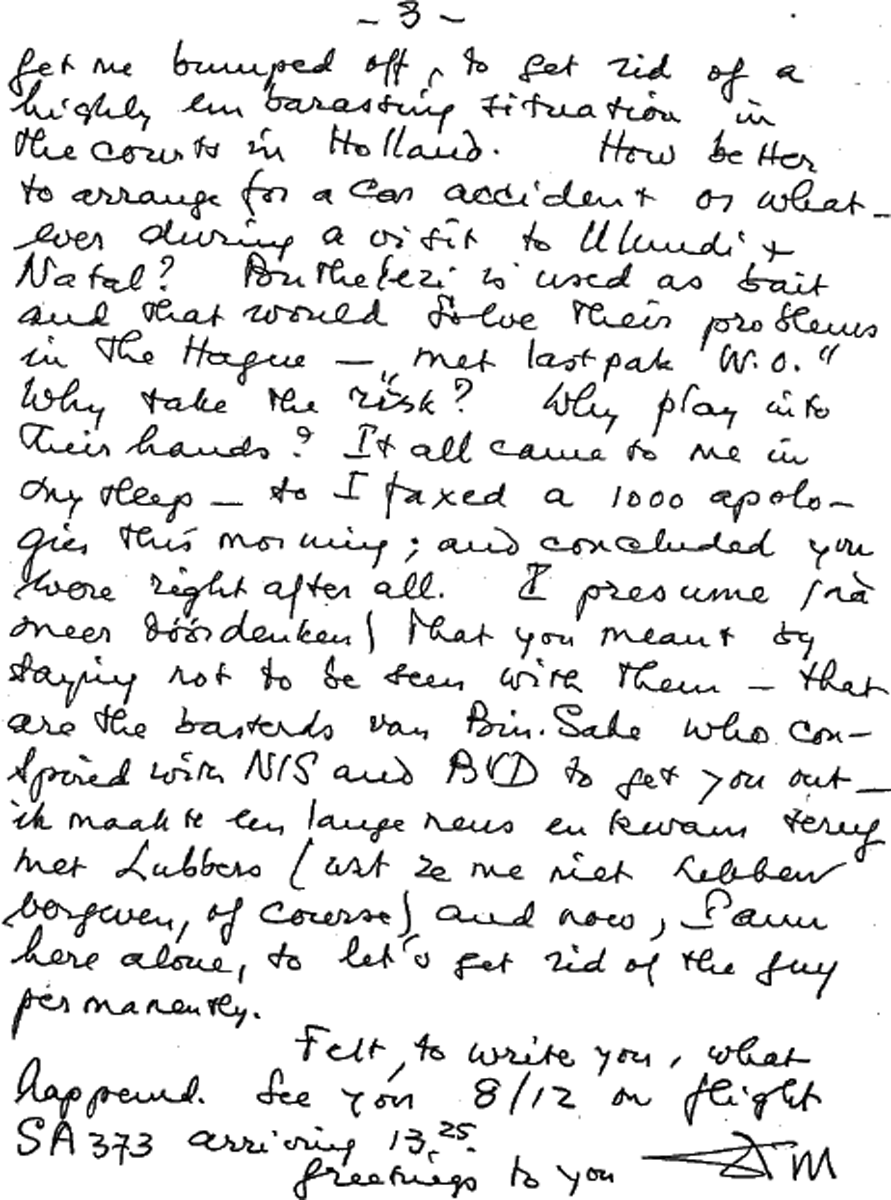 - 3 -
get me bumped off, to get rid of a
highly embarassing situation in
the courts in Holland. How better
to arrange for a car accident or what-
ever during a visit to Ulundi +
Natal? Buthelezi is used as bait
and that would solve their problems
in the Hague — „met lastpak W.O."
Why take the risk? Why play into
their hands? It all came to me in
my sleep — so I faxed a 1000 apolo-
gies this morning; and concluded you
were right after all. I presume (nà
meer dóórdenken) that you meant by
saying not to be seen with them — that
are the basterds van Bin. Sake who con-
spired with NIS and BVD to get you out —
ik maakte een lange neus en kwam terug
met Lubbers (wat ze me niet hebben
vergeven, of course) and now, I am
here alone, so let's get rid of the guy
permanently.
Felt, to write you, what
happend. See you 8/12 on flight
SA373 arriving 13.25.
greetings to you